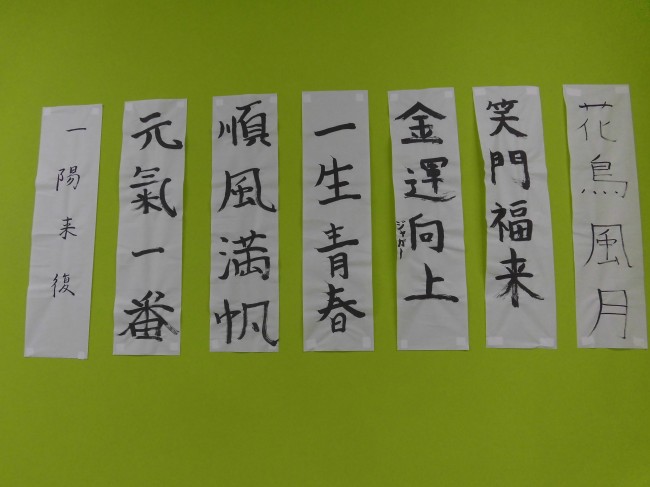 花鳥風月
笑門福来
金運向上
ジャガー
一生青春
順風満帆
元氣一番
一陽来復